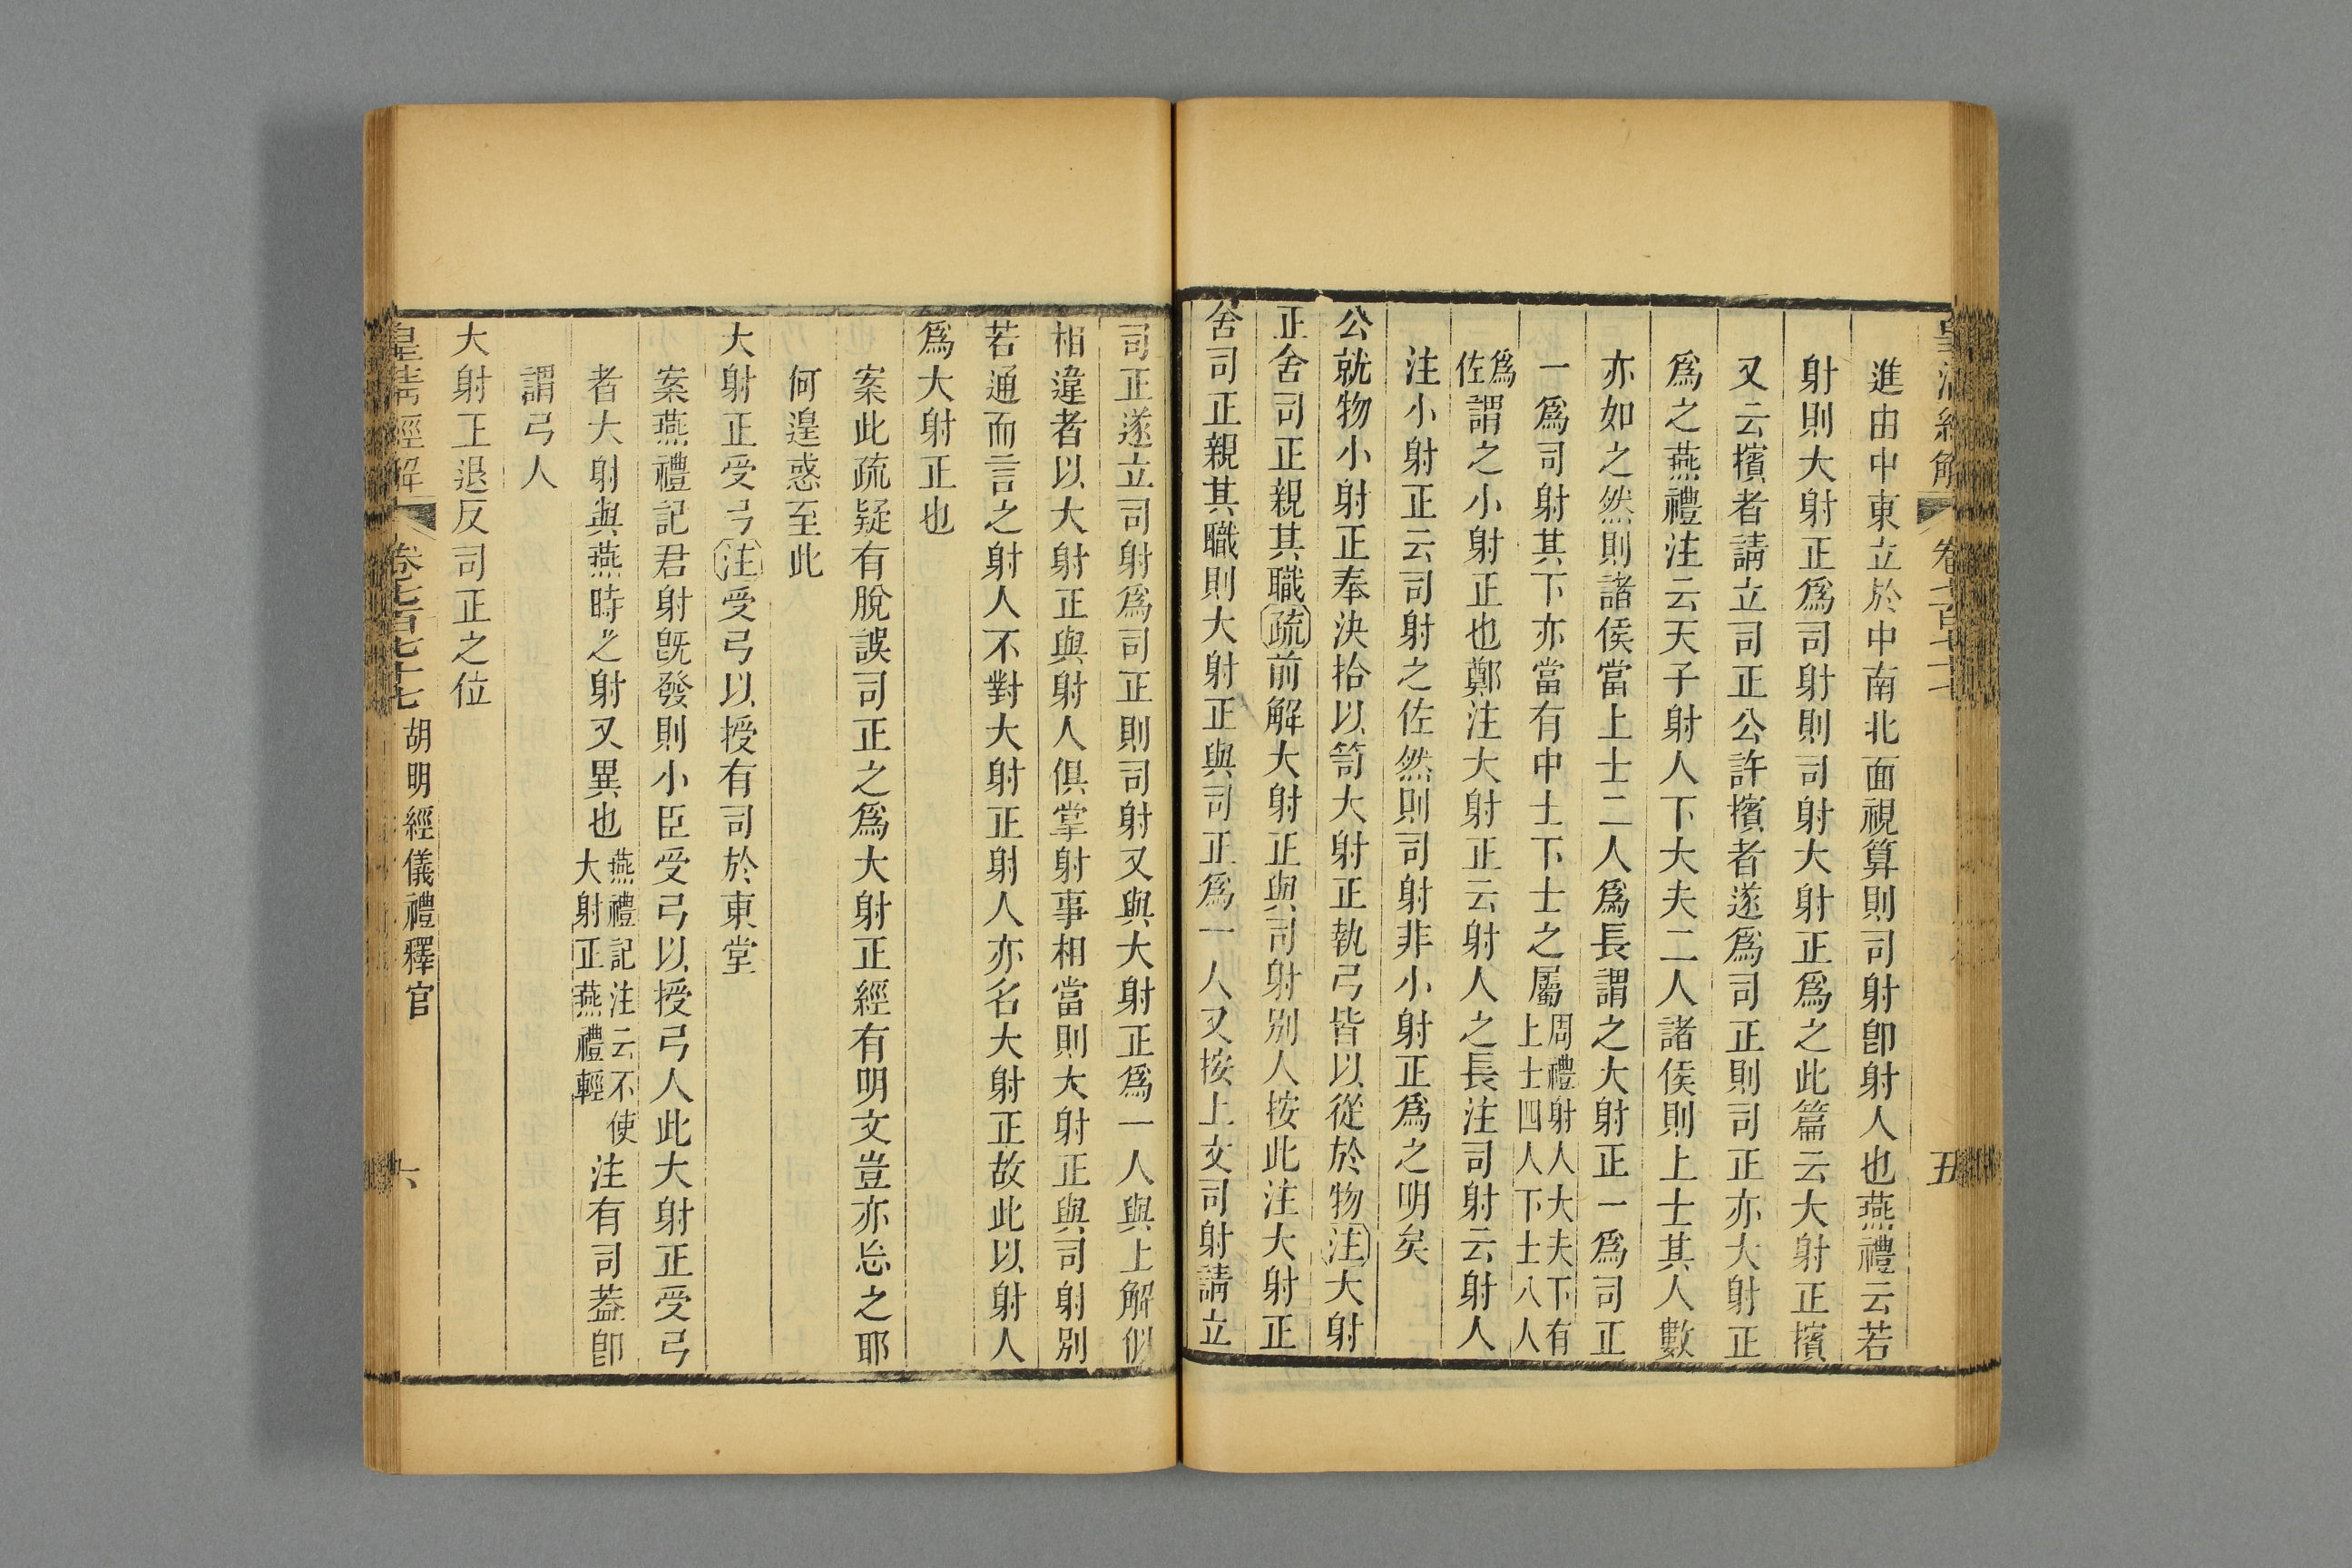 進由中東立於中南北面視算則司射卽射人也燕禮云若
射則大射正爲司射則司射大射正爲之此篇云大射正擯
又云擯者請立司正公許擯者遂爲司正則司正亦大射正
爲之燕禮注云天子射人下大夫二人諸侯則上士其人數
亦如之然則諸侯當上士二人爲長謂之大射正一爲司正
一爲司射其下亦當有中士下士之屬周禮射人大夫下有上士四人下士八人
爲佐謂之小射正也鄭注大射正云射人之長注司射云射人
注小射正云司射之佐然則司射非小射正爲之明矣
公就物小射正奉決拾以笥大射正執弓皆以從於物注大射
正舍司正親其職疏前解大射正與司射別人按此注大射正
舍司正親其職則大射正與司正爲一人又按上文司射請立
司正遂立司射爲司正則司射又與大射正爲一人與上解似
相違者以大射正與射人俱掌射事相當則大射正與司射別
若通而言之射人不對大射正射人亦名大射正故此以射人
爲大射正也
案此疏疑有脫誤司正之爲大射正經有明文豈亦忘之耶
何遑惑至此
大射正受弓注受弓以授有司於東堂
案燕禮記君射旣發則小臣受弓以授弓人此大射正受弓
者大射與燕時之射又異也燕禮記注云不使大射正燕禮輕注有司葢卽
謂弓人
大射正退反司正之位
皇淸經解 卷七百七十七 胡明經儀禮釋官 六